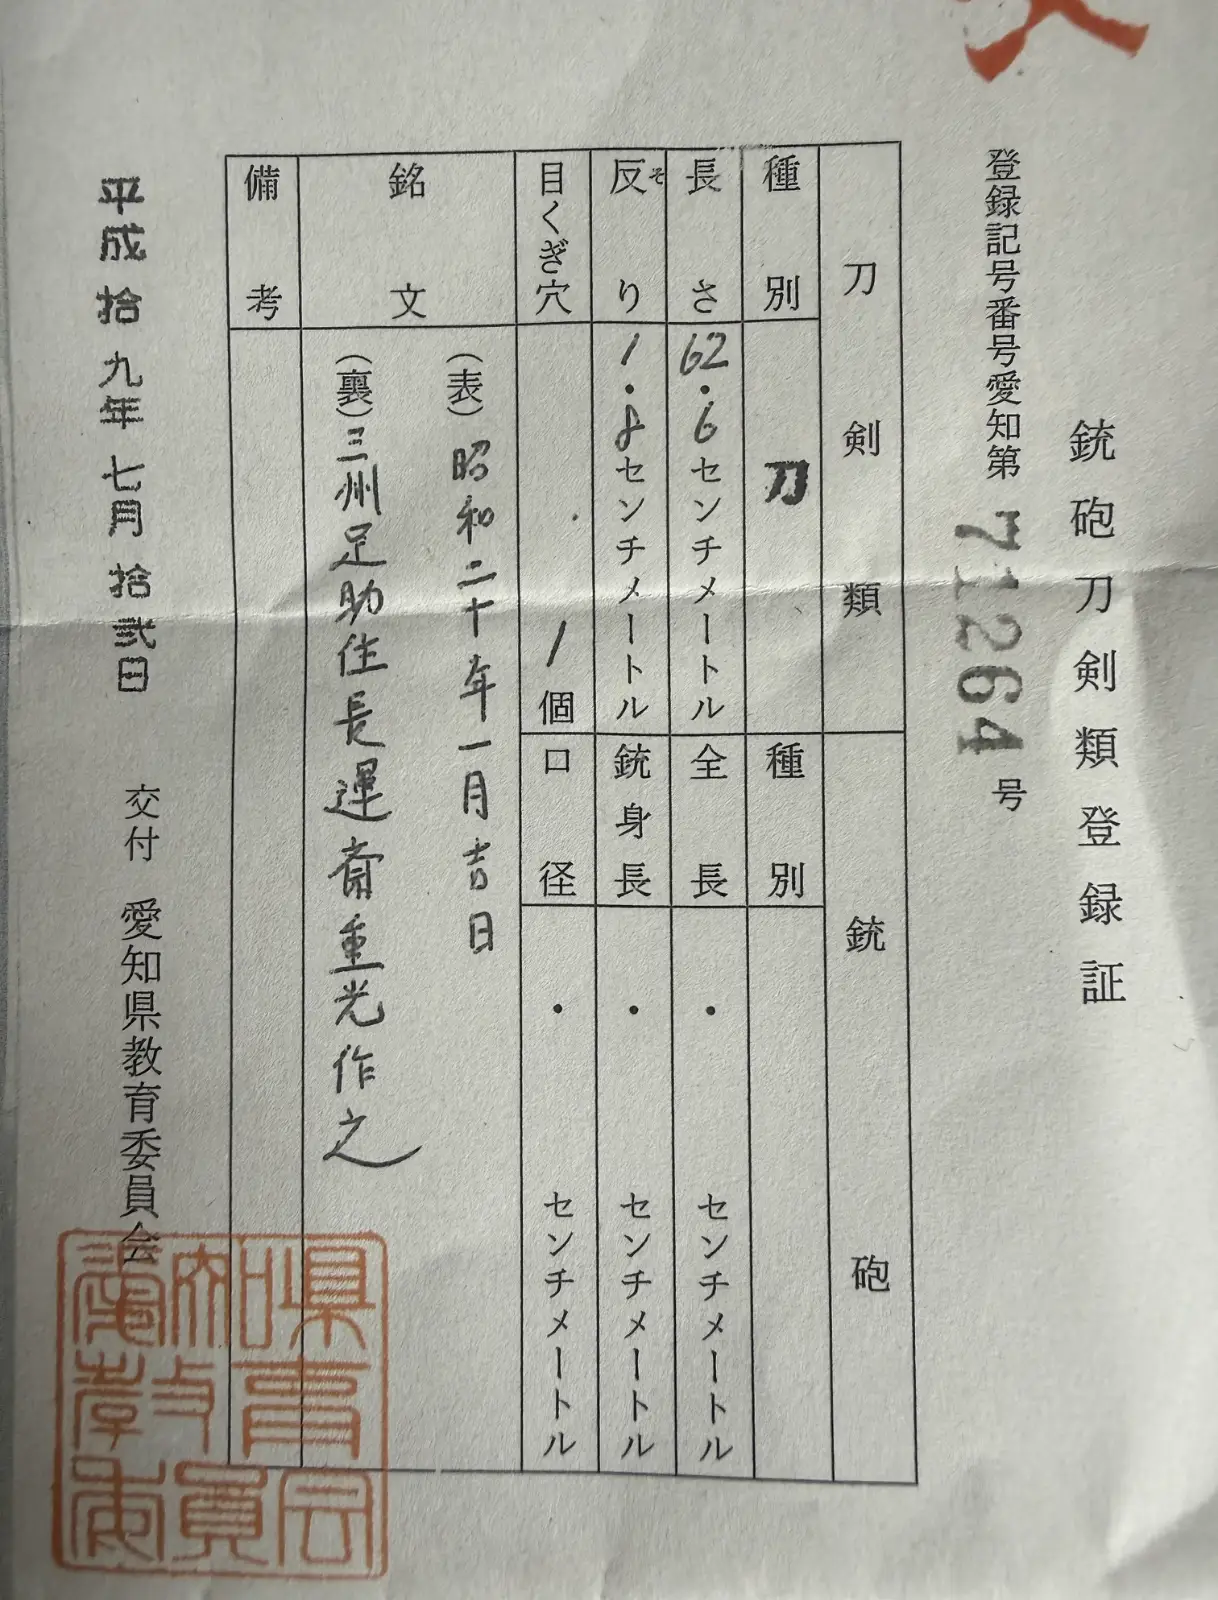 銃砲刀剣類登録証
登録記号番号愛知第71264号
刀剣類
銃砲
種別
刀
種別
長さ
62・6センチメートル
全長
・センチメートル
反り
そ
1・8センチメートル
銃身長
・センチメートル
目くぎ穴
1個
口径
・センチメートル
銘文
(表)昭和二十年一月吉日
(裏)三州足助住長運斎重光作之
備考
平成拾九年七月拾弐日 交付 愛知県教育委員会
愛知県教育委員会